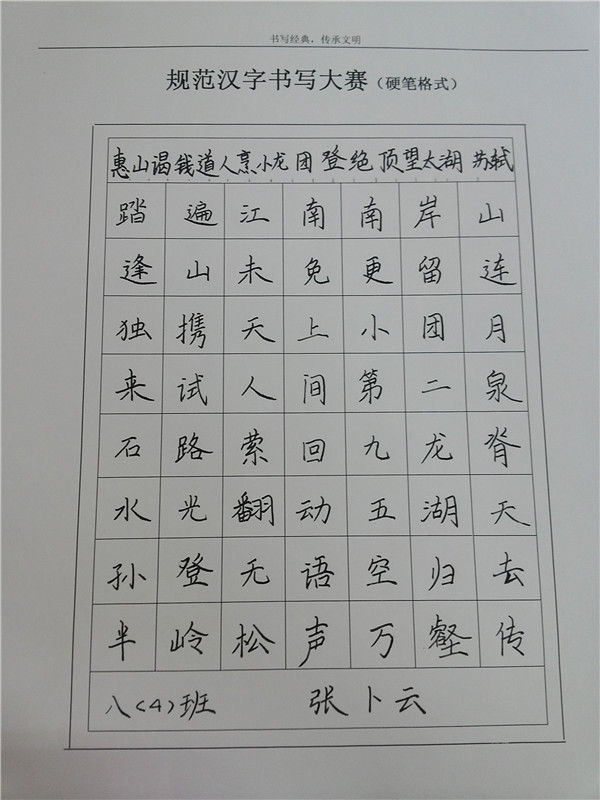 书写经典，传承文明
规范汉字书写大赛（硬笔格式）
惠山谒钱道人烹小龙团登绝顶望太湖 苏轼
踏遍江南南岸山
逢山未免更留连
独携天上小团月
来试人间第二泉
石路萦回九龙脊
水光翻动五湖天
孙登无语空归去
半岭松声万壑传
八（4）班 张卜云